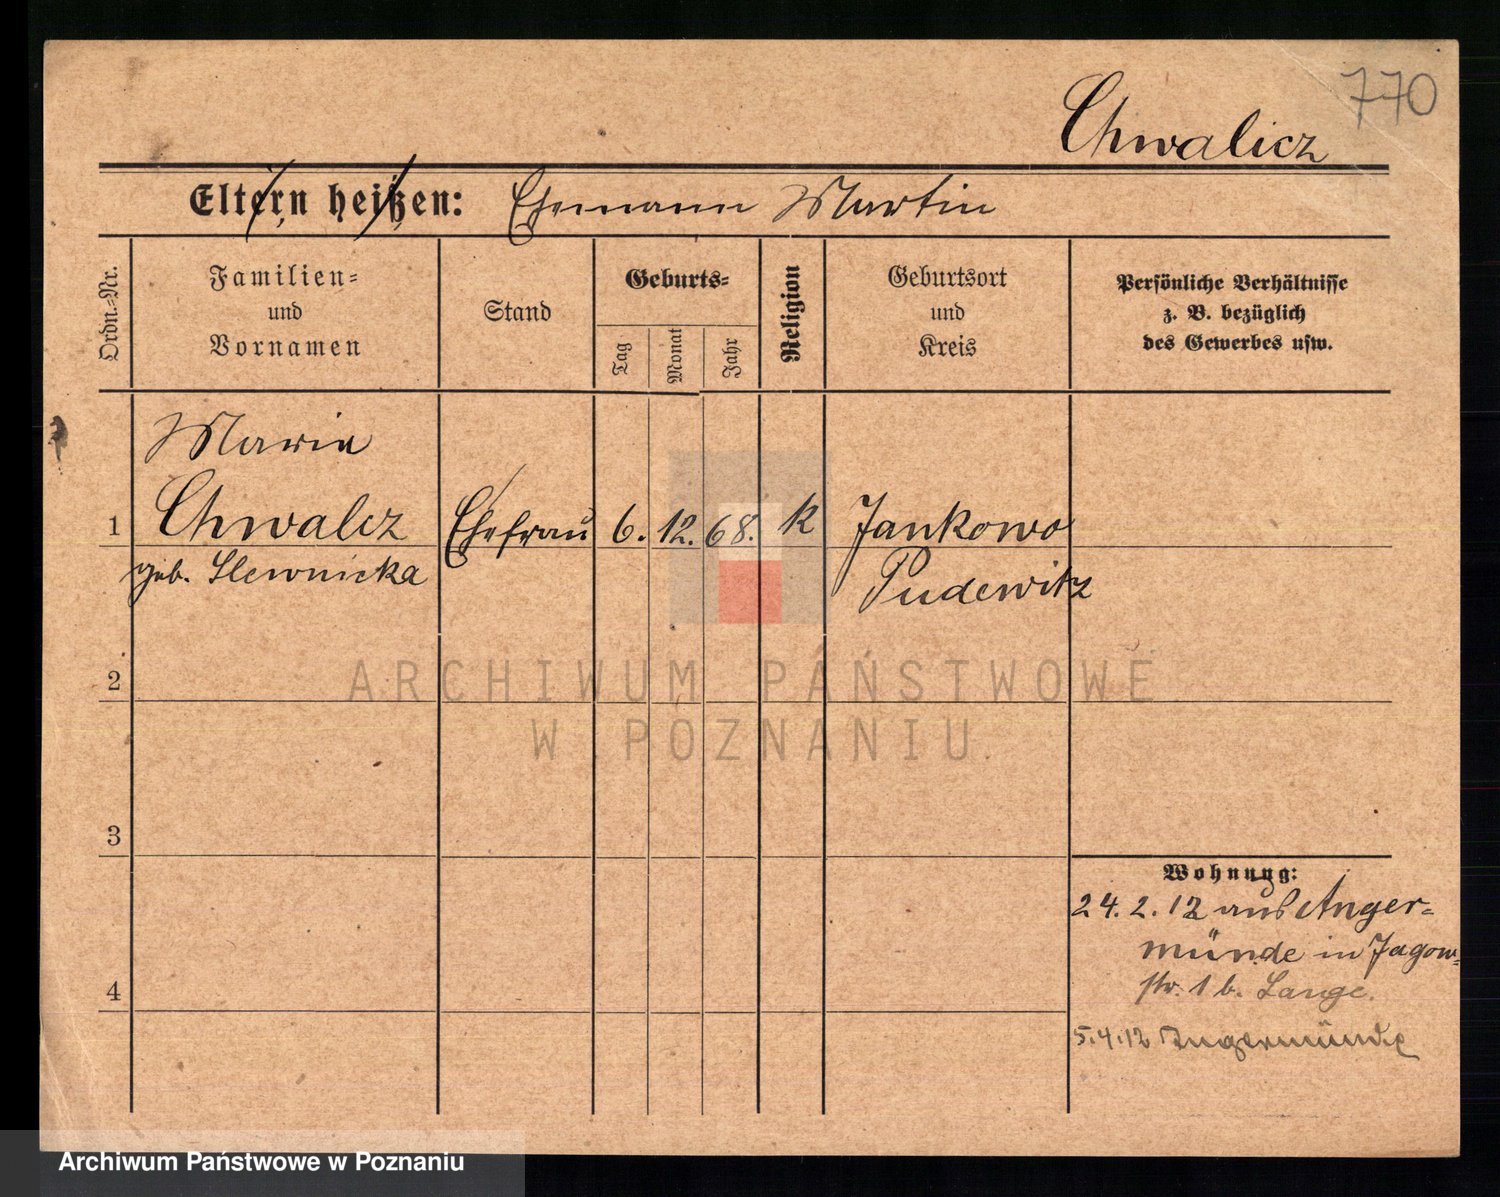 770
Chwalicz
Eltern heißen: Ehemann Martin
Ordn.-Nr.
Familien-
und
Vornamen
Stand
Geburts-
Tag
Monat
Jahr
Religion
Geburtsort
und
Kreis
Persönliche Verhältnisse
z. B. bezüglich
des Gewerbes usw.
Maria
1 Chwalcz Ehefrau 6. 12. 68. k Jankowo
geb. Slewnicka Pudewitz
2
ARCHIWUM PAŃSTWOWE
W POZNANIU
3
Wohnung:
24. 2. 12 aus Anger-
münde in Jagow-
4
str. 1 b. Lange.
5.4.12 Angermünde
Archiwum Państwowe w Poznaniu